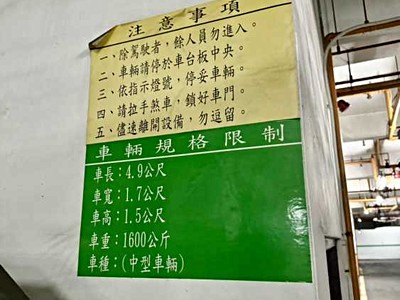 注意事項
一、除駕駛者，餘人員勿進入。
二、車輛請停於車台板中央。
三、依指示燈號，停妥車輛。
四、請拉手煞車，鎖好車門。
五、儘速離開設備，勿逗留。
車輛規格限制
車長：4.9公尺
車寬：1.7公尺
車高：1.5公尺
車重：1600公斤
車種：(中型車輛)